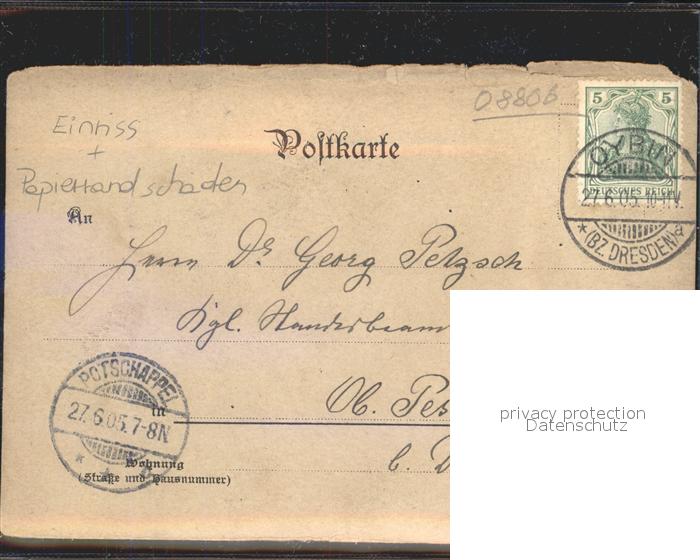 08806
5 5
Einriss
+
Papierrandschaden
Postkarte
DEUTSCHES REICH
OYBIN
27.6.05. 10-11V.
*(BZ. DRESDEN)a
An
Herrn Dr. Georg Petzsch
Kgl. Standesbeam
POTSCHAPPEL
27.6.05.7-8N
in
Ob. Pes
b. D
Wohnung
(Straße und Hausnummer)
privacy protection
Datenschutz